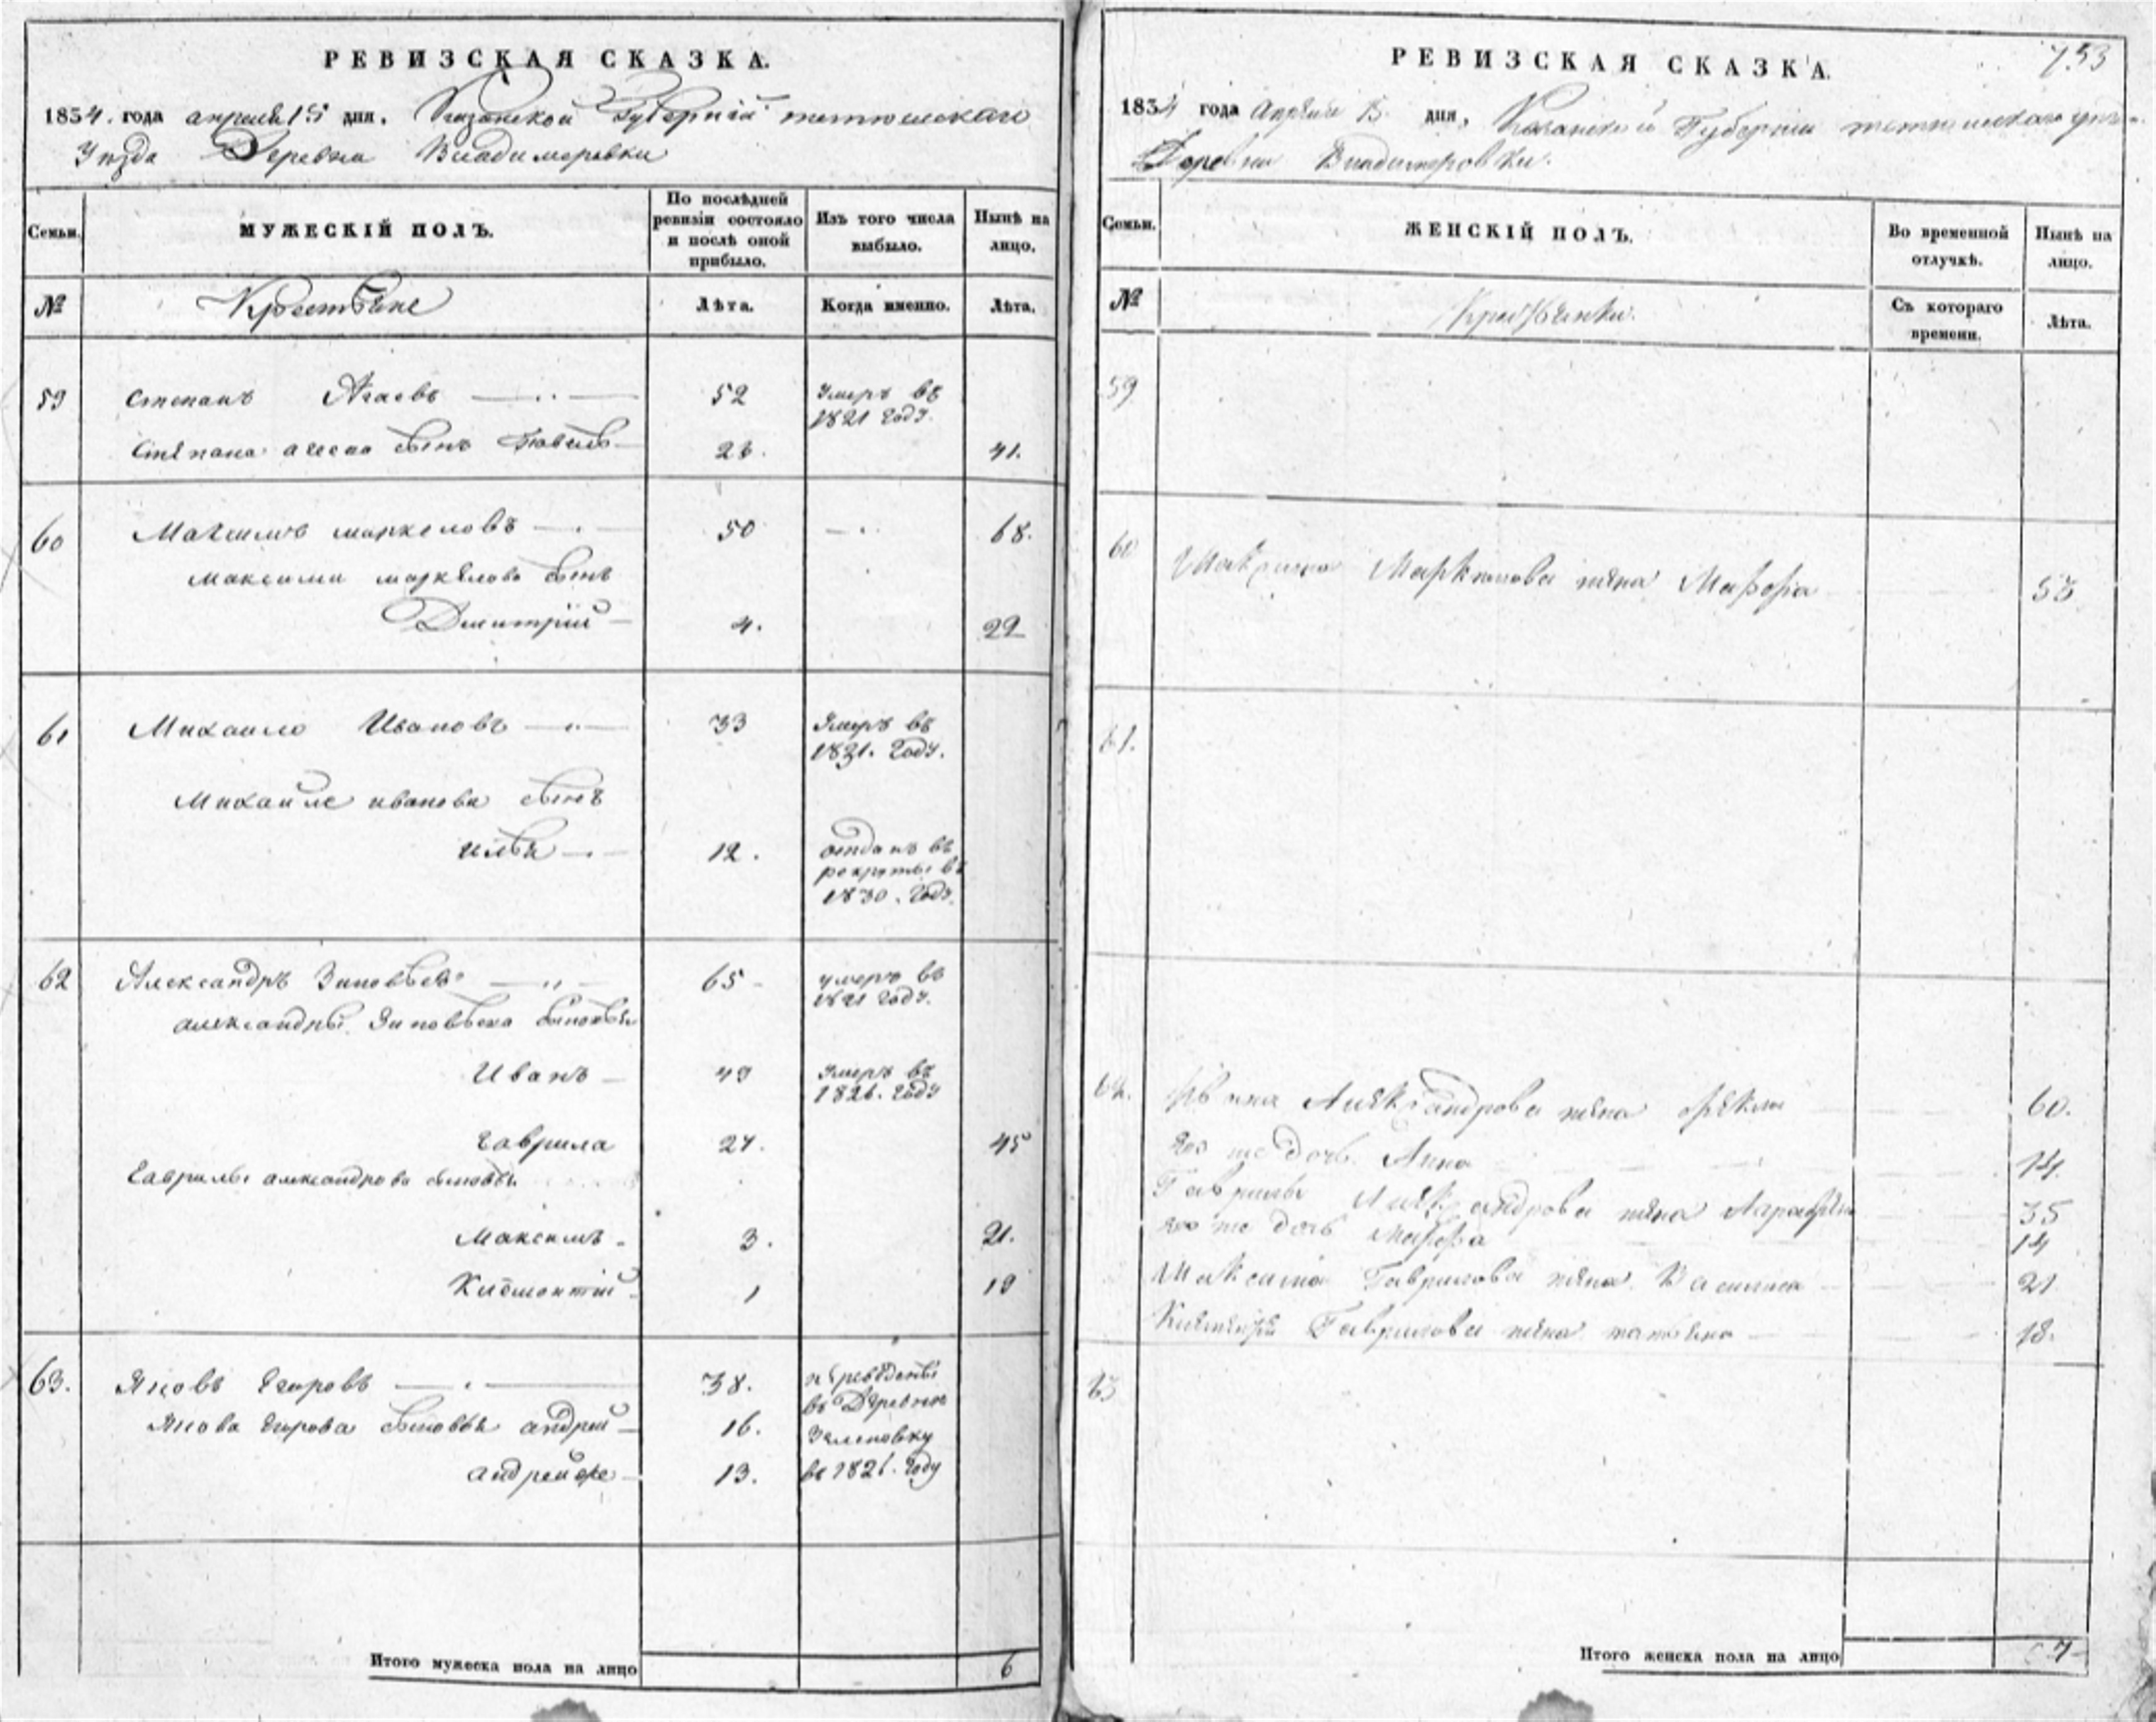 РЕВИЗСКАЯ СКАЗКА.
1834. года апреля 15 дня, Казанской Губернiи тетюшскаго
Уезда Деревни Владимеровки
Семьи.
МУЖЕСКIЙ ПОЛЪ.
По послѣдней ревизiи состояло и послѣ оной прибыло.
Изъ того числа выбыло.
Нынѣ на лицо.
№
Крестьяне
Лѣта.
Когда именно.
Лѣта.
59 Степанъ Агаевъ 52 Умеръ въ 1821 году.
Степана агеева сынъ 23. 41.
60 Максимъ маркеловъ 50 68.
Максима маркелова сынъ
Дмитрiй 4. 22
61 Михайло Ивановъ 33 Умеръ въ 1831. году.
Михайле иванова сынъ
илья 12. отданъ въ рекруты въ 1830. году.
62 Александръ Зиновьевъ 65 умеръ въ 1821 году.
александры Зиновьева сыновья
Иванъ 49 Умеръ въ 1826. году
гаврила 27. 45
Гаврилы александрова сыновья
Максимъ 3. 21.
Клементiй 1 19
63. Яковъ Егоровъ 38. переведены
Якова Егорова сыновья андрей 16. въ Деревню Зеленовку
андрей же 13. въ 1821. году
Итого мужеска пола на лицо 6
753
РЕВИЗСКАЯ СКАЗКА.
1834 года Апреля 15 дня, Казанской Губернiи тетюшскаго
Деревни Владимеровки.
Семьи.
ЖЕНСКIЙ ПОЛЪ.
Во временной отлучкѣ.
Нынѣ на лицо.
№
Крестьянки.
Съ котораго времени.
Лѣта.
59
60 Максима Маркелова жена Марфа 53
61.
62. Ивана Александрова жена Фекла 60.
его же дочь Анна 14.
Гаврилы Александрова жена Аграфена 35
его же дочь Марфа 14
Максима Гаврилова жена Василиса 21
Клементiя Гаврилова жена татьяна 18.
63
Итого женска пола на лицо 7